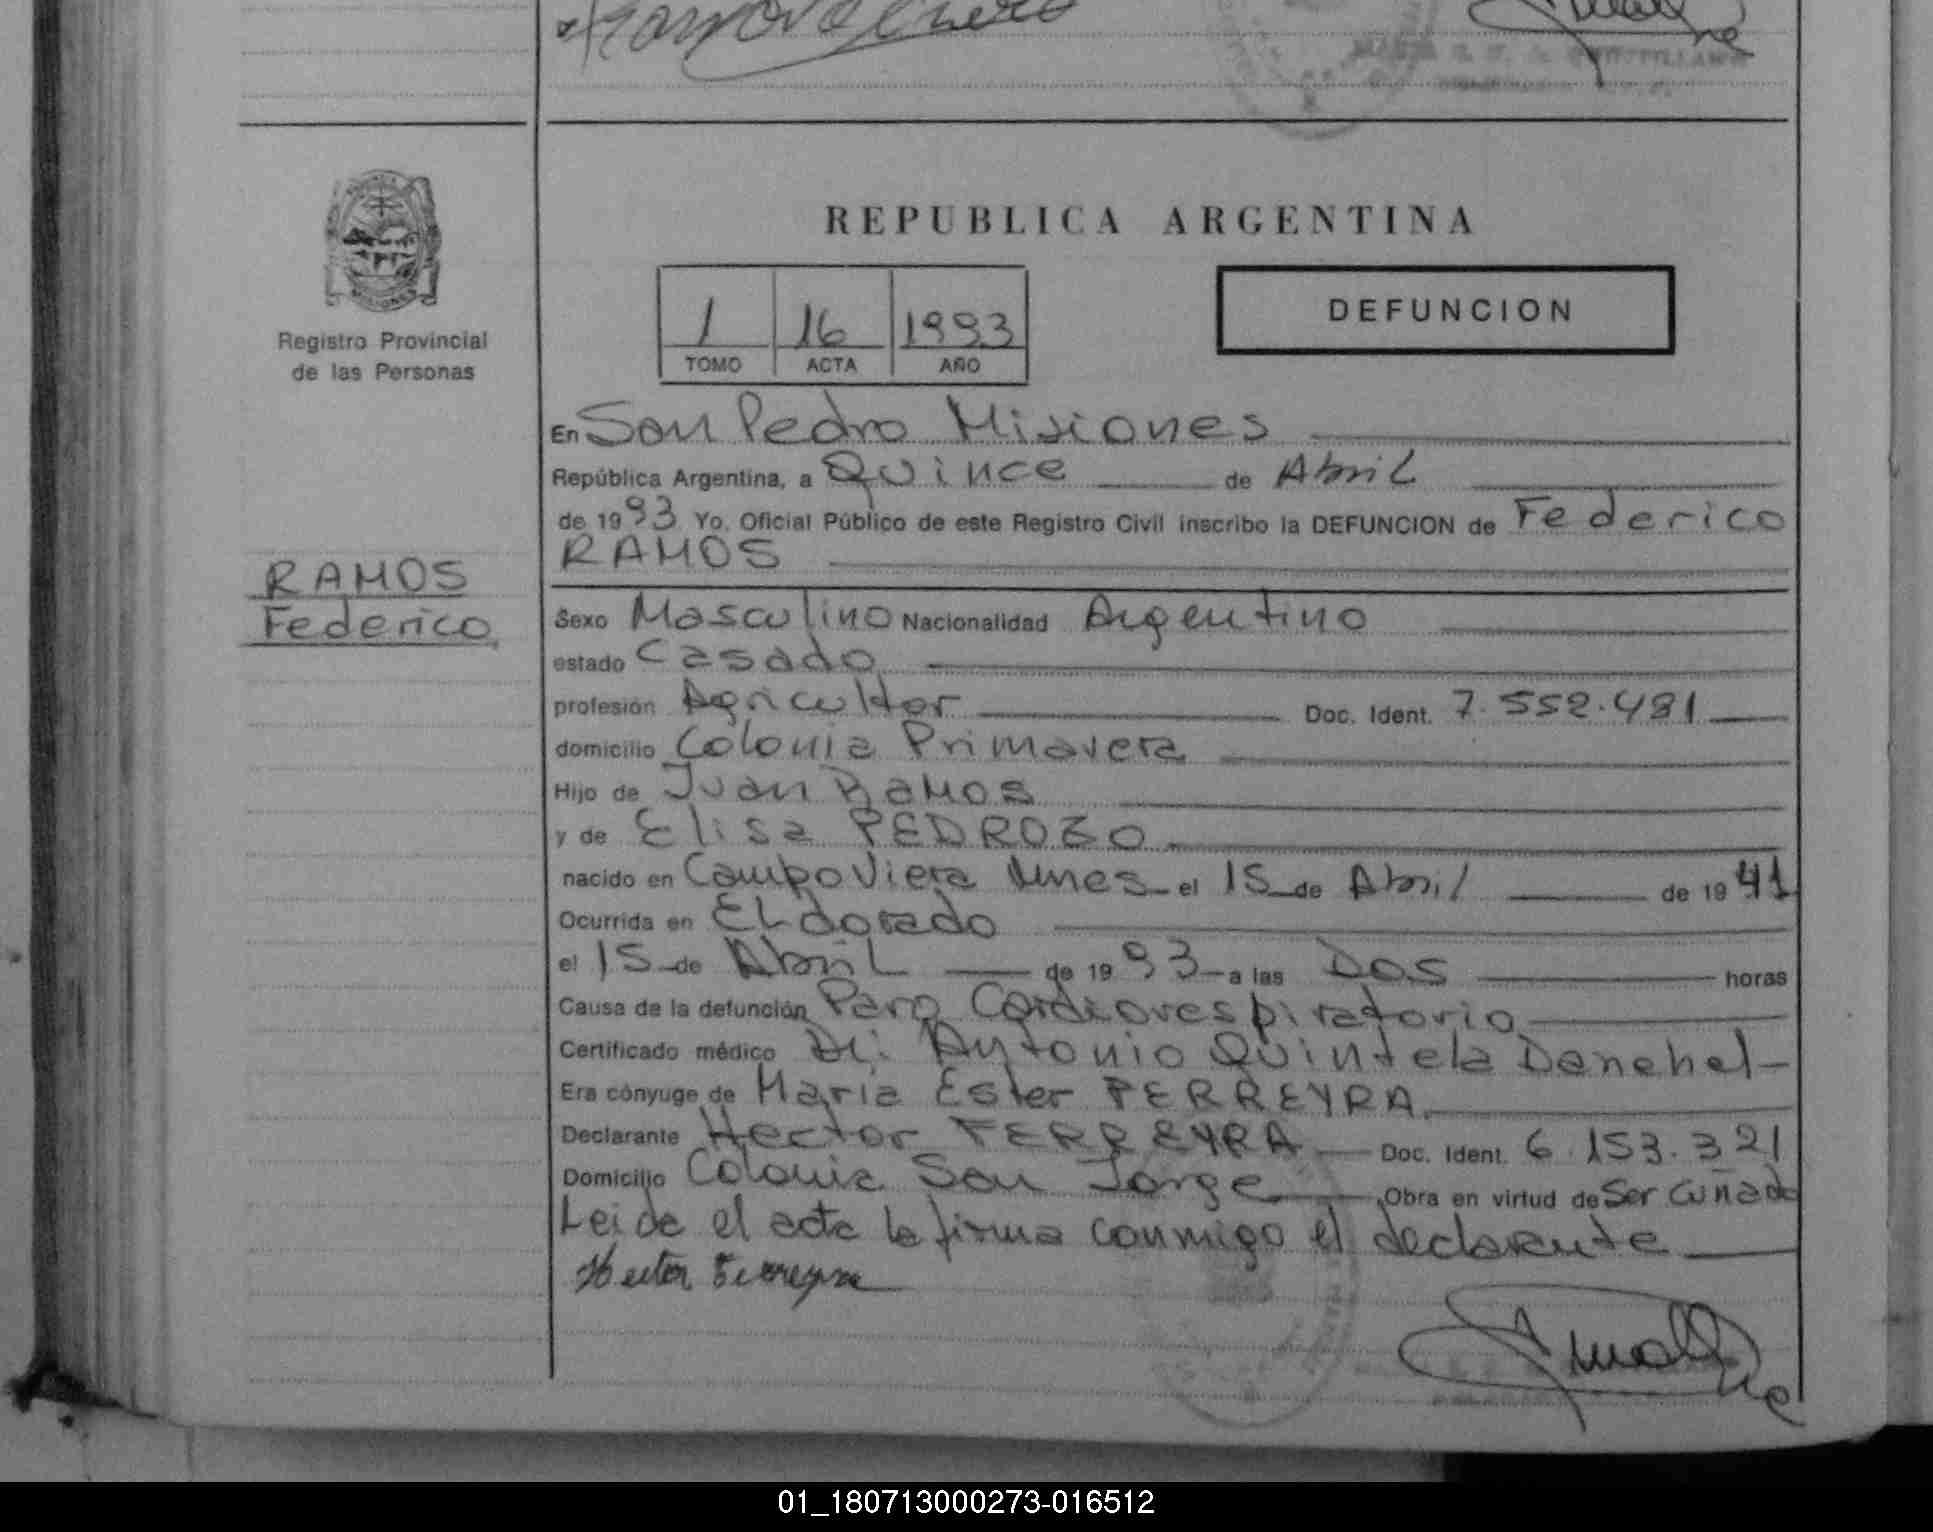 REPUBLICA ARGENTINA
Registro Provincial
de las Personas
1 16 1993
TOMO ACTA AÑO
DEFUNCION
En San Pedro Misiones
República Argentina, a Quince de Abril
de 1993 Yo, Oficial Público de este Registro Civil inscribo la DEFUNCION de Federico
RAMOS
RAMOS
Federico
Sexo Masculino Nacionalidad Argentino
estado Casado
profesión Agricultor Doc. Ident. 7.552.481
domicilio Colonia Primavera
Hijo de Juan Ramos
y de Elisa PEDROZO
nacido en Campo Viera Mnes el 15 de Abril de 1941
Ocurrida en ELdorado
el 15 de Abril de 1993 a las Dos horas
Causa de la defunción Paro Cardiorespiratorio
Certificado médico Dr: Antonio Quintela Danehel
Era cónyuge de Maria Ester FERREYRA
Declarante Hector FERREYRA Doc. Ident. 6.153.321
Domicilio Colonia San Jorge Obra en virtud de Ser Cuñado
Leida el acta la firma conmigo el declarante
Hector Ferreyra
01_180713000273-016512